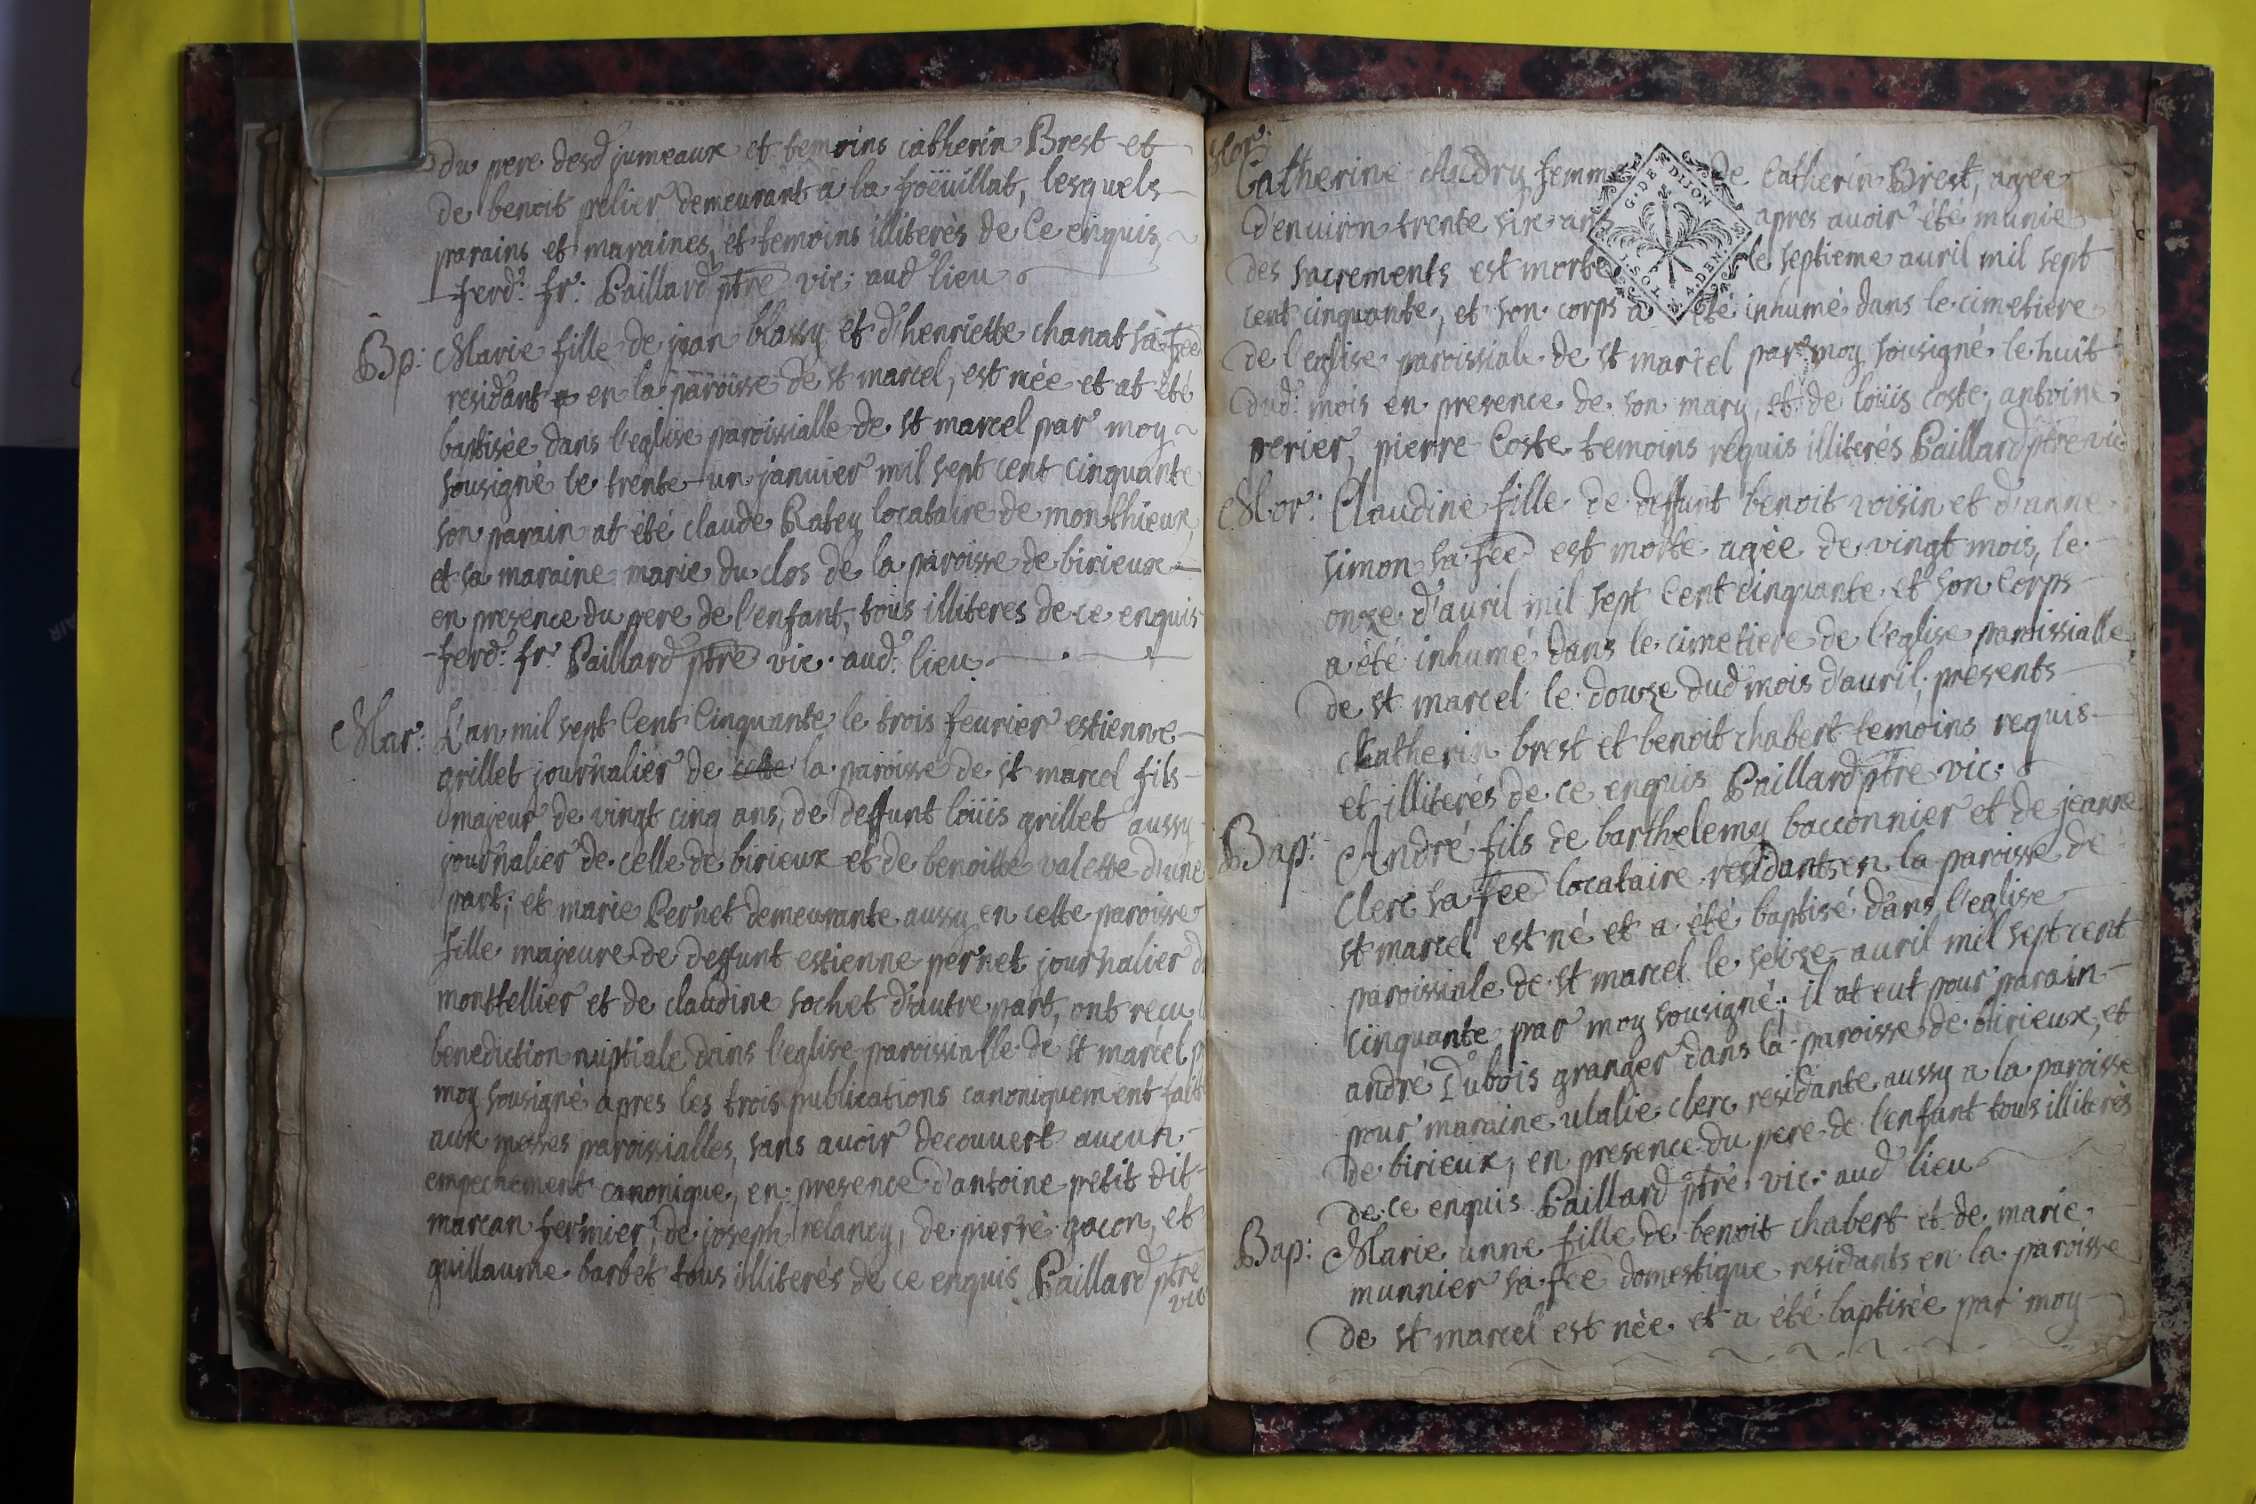 du pere desd. jumeaux et temoins catherin Brest et
de benoit pelier demeurant a la foëuillat, lesquels
parains et maraines, et temoins illiterès de Ce enquis,
ferd. fr. Paillard ptre vic. aud. lieu
Bp: Marie fille de jean blassy et d'henriette chanat sa fee
residant en la paroisse de st marcel, est née et at été
baptisée dans l'eglise paroissialle de st marcel par moy
sousigné le trente un janvier mil sept cent cinquante
son parain at été claude Ratey locataire de monthieux,
et sa maraine marie du clos de la paroisse de birieux
en presence du pere de l'enfant, tous illiteres de ce enquis
ferd. fr. Paillard ptre vic. aud. lieu.
Mar: L'an mil sept Cent Cinquante le trois fevrier estienne
grillet journalier de cette la paroisse de st marcel fils
majeur de vingt cinq ans, de deffunt loüis grillet aussy
journalier de celle de birieux et de benoitte valette d'une
part; et marie Pernet demeurante aussy en cette paroisse
fille majeure de deffunt estienne pernet journalier de
monttellier et de claudine sochet d'autre part, ont recu la
benediction nuptiale dans l'eglise paroissialle de st marcel p
moy sousigné apres les trois publications canoniquement fait
aux messes paroissialles, sans avoir decouvert aucun
empechement canonique, en presence d'antoine petit dit
marcan fermier, de joseph relancy, de pierre gacon, et
guillaume barbet tous illiterés de ce enquis Paillard ptre
vic
Mor:
Catherine Audry femme de Catherin Brest, agée
d'environ trente six ans apres avoir été munie
des sacrements est morte le septieme avril mil sept
cent cinquante, et son corps a été inhumé dans le cimetiere
de l'eglise paroissiale de st marcel par moy sousigné le huit
dud. mois en presence de son mary, et de loüis Coste, antoine
perier, pierre Coste temoins requis illiterés Paillard ptre vic.
G. DE DIJON
4. DEN.
Mor: Claudine fille de deffunt benoit voisin et d'anne
simon sa fee est morte agée de vingt mois, le
onze d'avril mil sept Cent cinquante et son Corps
a été inhumé dans le cimetiere de l'eglise paroissialle
de st marcel le douze dud. mois d'avril, presents
Catherin brest et benoit chabert temoins requis
et illiterés de ce enquis Paillard ptre vic.
Bap: André fils de barthelemy bacconnier et de jeanne
Clerc sa fee locataire residants en la paroisse de
st marcel est né et a été baptisé dans l'eglise
paroissiale de st marcel le seize avril mil sept cent
cinquante par moy sousigné; il at eut pour parain
andré Dubois granger dans la paroisse de birieux, et
pour maraine ulalie clerc residante aussy a la paroisse
de birieux, en presence du pere de l'enfant tous illiterés
de ce enquis Paillard ptre vic. aud. lieu
Bap: Marie anne fille de benoit chabert et de marie
munnier sa fee domestique residants en la paroisse
de st marcel est née et a été baptisée par moy